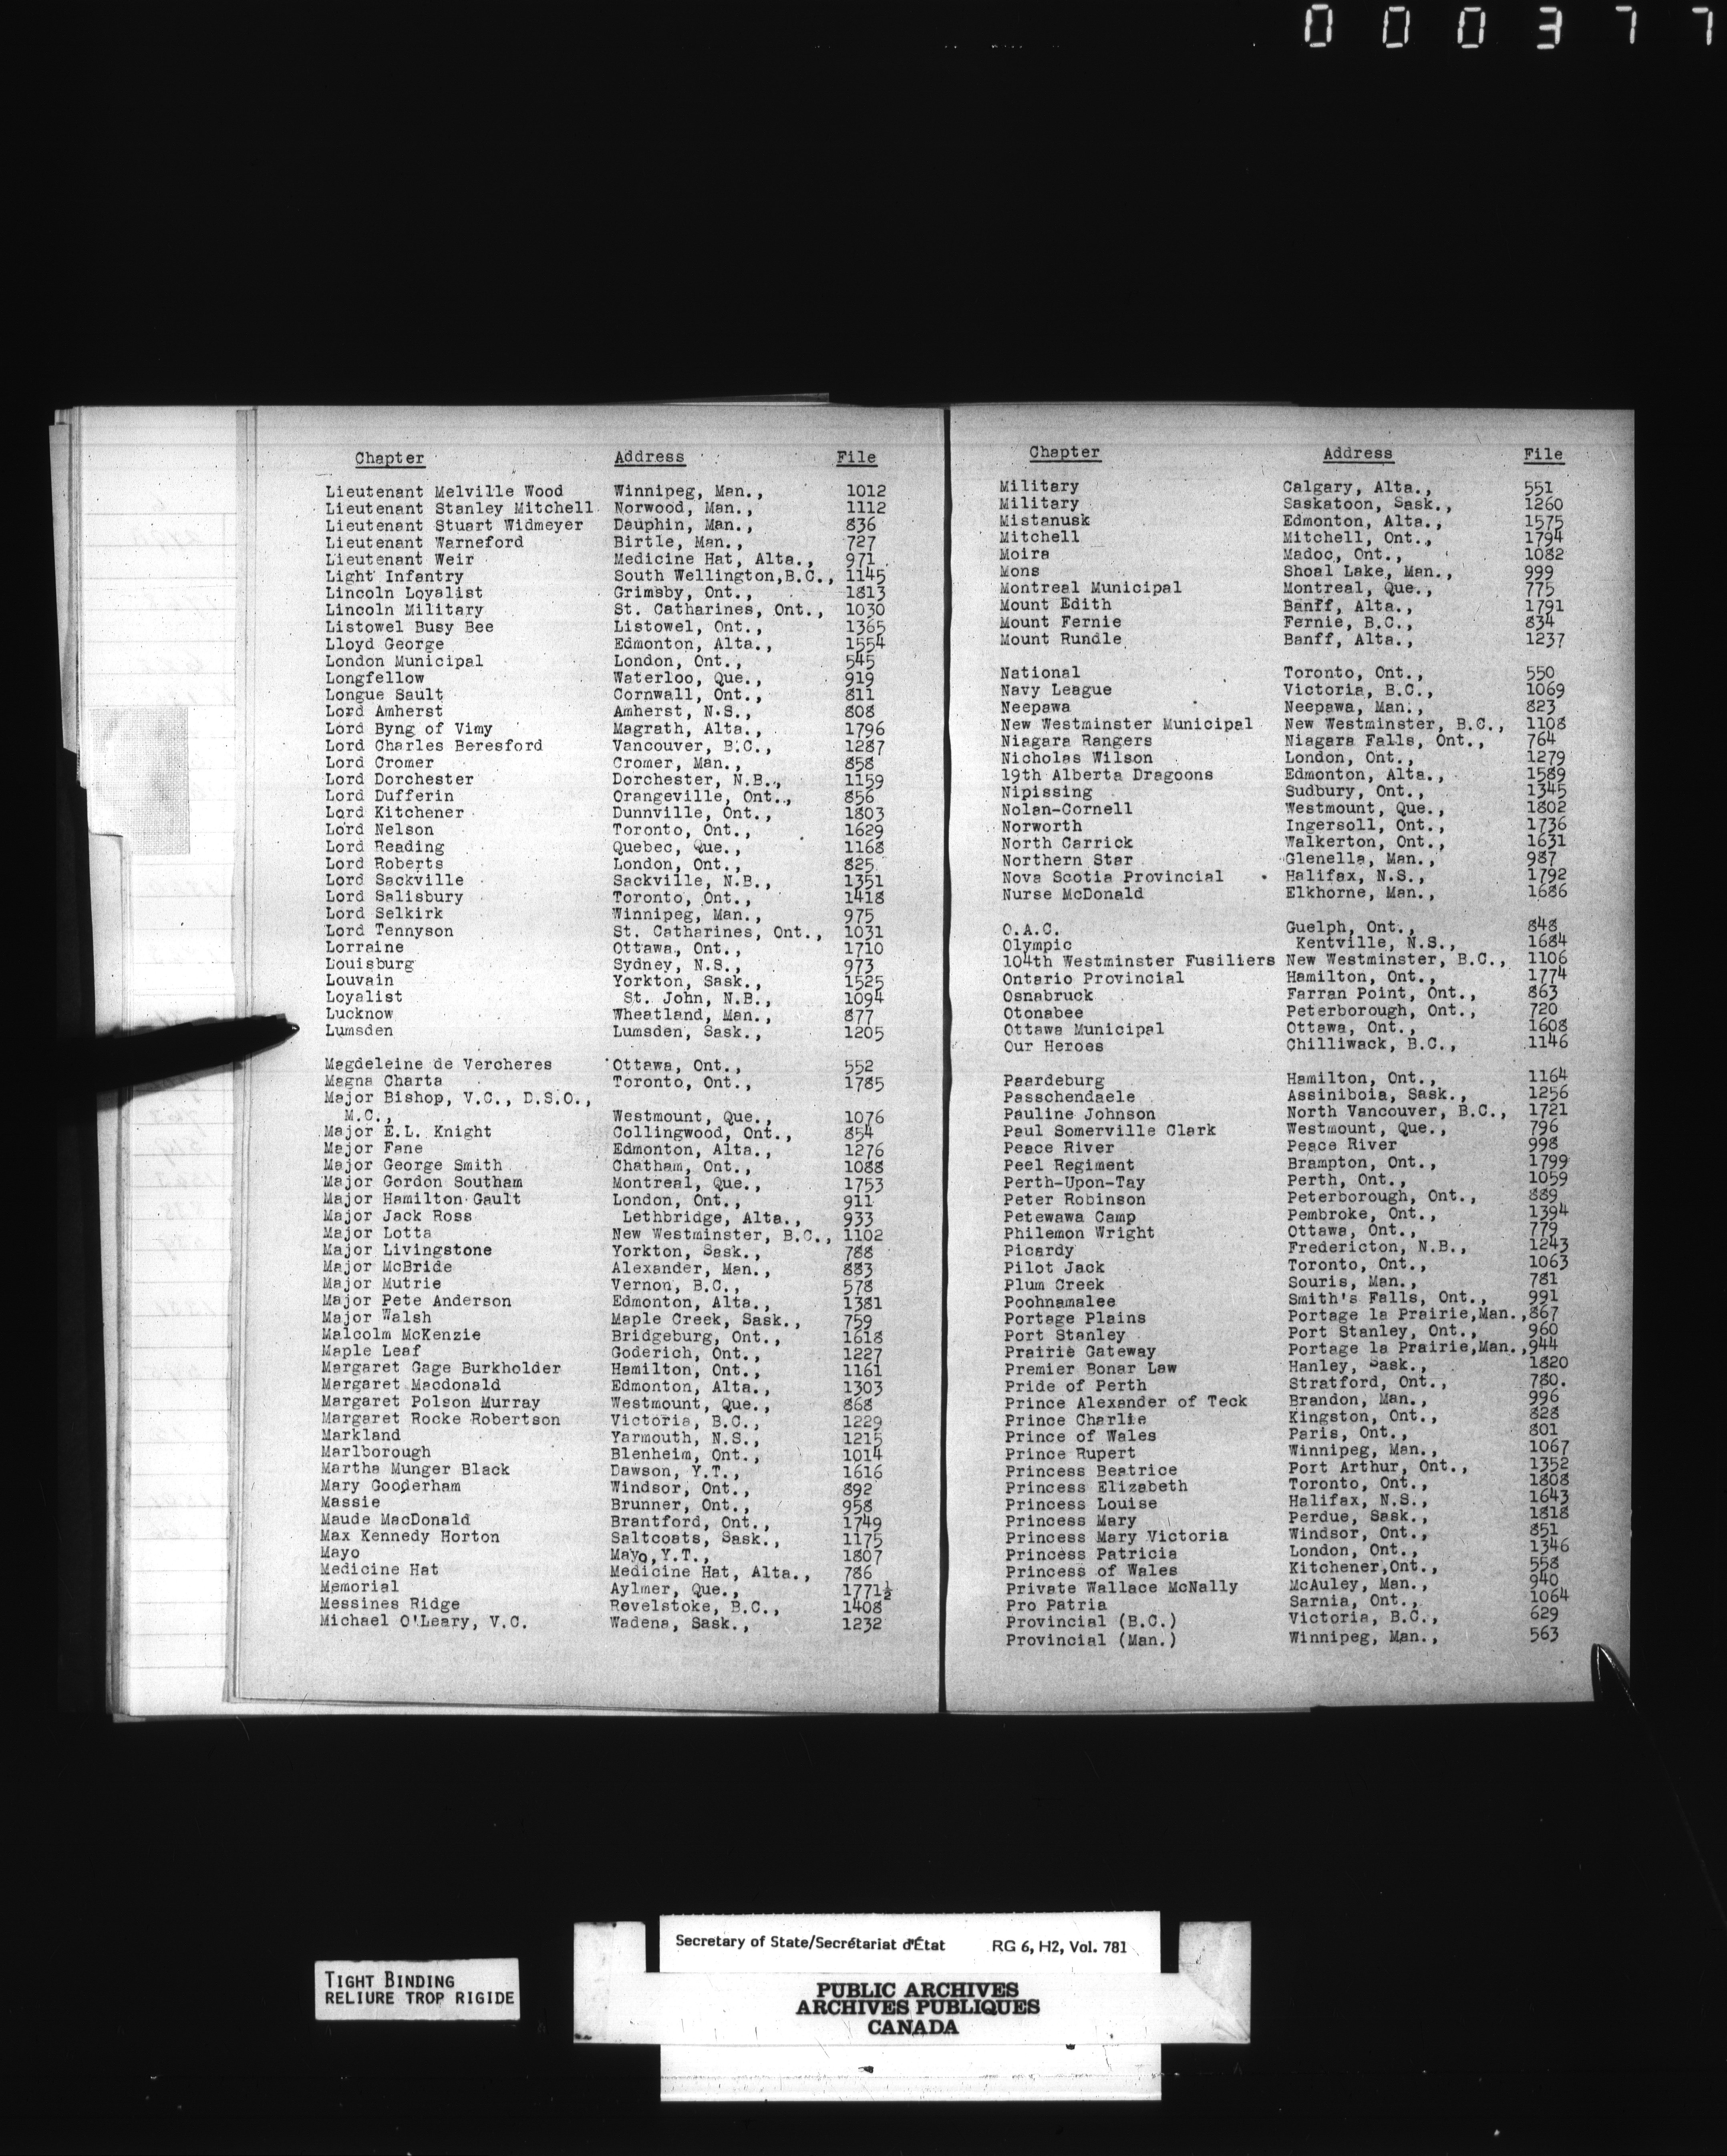 000377
Chapter Address File
Lieutenant Melville Wood Winnipeg, Man., 1012
Lieutenant Stanley Mitchell Norwood, Man., 1112
Lieutenant Stuart Widmeyer Dauphin, Man., 836
Lieutenant Warneford Birtle, Man., 727
Lieutenant Weir Medicine Hat, Alta., 971
Light Infantry South Wellington,B.C., 1145
Lincoln Loyalist Grimsby, Ont., 1813
Lincoln Military St. Catharines, Ont., 1030
Listowel Busy Bee Listowel, Ont., 1365
Lloyd George Edmonton, Alta., 1554
London Municipal London, Ont., 545
Longfellow Waterloo, Que., 919
Longue Sault Cornwall, Ont., 811
Lord Amherst Amherst, N.S., 808
Lord Byng of Vimy Magrath, Alta., 1796
Lord Charles Beresford Vancouver, B.C., 1287
Lord Cromer Cromer, Man., 858
Lord Dorchester Dorchester, N.B., 1159
Lord Dufferin Orangeville, Ont., 856
Lord Kitchener Dunnville, Ont., 1803
Lord Nelson Toronto, Ont., 1629
Lord Reading Quebec, Que., 1168
Lord Roberts London, Ont., 825
Lord Sackville Sackville, N.B., 1351
Lord Salisbury Toronto, Ont., 1418
Lord Selkirk Winnipeg, Man., 975
Lord Tennyson St. Catharines, Ont., 1031
Lorraine Ottawa, Ont., 1710
Louisburg Sydney, N.S., 973
Louvain Yorkton, Sask., 1525
Loyalist St. John, N.B., 1094
Lucknow Wheatland, Man., 877
Lumsden Lumsden, Sask., 1205
Magdeleine de Vercheres Ottawa, Ont., 552
Magna Charta Toronto, Ont., 1785
Major Bishop, V.C., D.S.O.,
M.C., Westmount, Que., 1076
Major E.L. Knight Collingwood, Ont., 854
Major Fane Edmonton, Alta., 1276
Major George Smith Chatham, Ont., 1088
Major Gordon Southam Montreal, Que., 1753
Major Hamilton Gault London, Ont., 911
Major Jack Ross Lethbridge, Alta., 933
Major Lotta New Westminster, B.C., 1102
Major Livingstone Yorkton, Sask., 788
Major McBride Alexander, Man., 883
Major Mutrie Vernon, B.C., 578
Major Pete Anderson Edmonton, Alta., 1381
Major Walsh Maple Creek, Sask., 759
Malcolm McKenzie Bridgeburg, Ont., 1618
Maple Leaf Goderich, Ont., 1227
Margaret Gage Burkholder Hamilton, Ont., 1161
Margaret Macdonald Edmonton, Alta., 1303
Margaret Polson Murray Westmount, Que., 868
Margaret Rocke Robertson Victoria, B.C., 1229
Markland Yarmouth, N.S., 1215
Marlborough Blenheim, Ont., 1014
Martha Munger Black Dawson, Y.T., 1616
Mary Gooderham Windsor, Ont., 892
Massie Brunner, Ont., 958
Maude MacDonald Brantford, Ont., 1749
Max Kennedy Horton Saltcoats, Sask., 1175
Mayo Mayo,Y.T., 1807
Medicine Hat Medicine Hat, Alta., 786
Memorial Aylmer, Que., 1771½
Messines Ridge Revelstoke, B.C., 1408
Michael O'Leary, V.C. Wadena, Sask., 1232
Chapter Address File
Military Calgary, Alta., 551
Military Saskatoon, Sask., 1260
Mistanusk Edmonton, Alta., 1575
Mitchell Mitchell, Ont., 1794
Moira Madoc, Ont., 1082
Mons Shoal Lake, Man., 999
Montreal Municipal Montreal, Que., 775
Mount Edith Banff, Alta., 1791
Mount Fernie Fernie, B.C., 834
Mount Rundle Banff, Alta., 1237
National Toronto, Ont., 550
Navy League Victoria, B.C., 1069
Neepawa Neepawa, Man., 823
New Westminster Municipal New Westminster, B.C., 1108
Niagara Rangers Niagara Falls, Ont., 764
Nicholas Wilson London, Ont., 1279
19th Alberta Dragoons Edmonton, Alta., 1589
Nipissing Sudbury, Ont., 1345
Nolan-Cornell Westmount, Que., 1802
Norworth Ingersoll, Ont., 1736
North Carrick Walkerton, Ont., 1631
Northern Star Glenella, Man., 987
Nova Scotia Provincial Halifax, N.S., 1792
Nurse McDonald Elkhorne, Man., 1686
O.A.C. Guelph, Ont., 848
Olympic Kentville, N.S., 1684
104th Westminster Fusiliers New Westminster, B.C., 1106
Ontario Provincial Hamilton, Ont., 1774
Osnabruck Farran Point, Ont., 863
Otonabee Peterborough, Ont., 720
Ottawa Municipal Ottawa, Ont., 1608
Our Heroes Chilliwack, B.C., 1146
Paardeburg Hamilton, Ont., 1164
Passchendaele Assiniboia, Sask., 1256
Pauline Johnson North Vancouver, B.C., 1721
Paul Somerville Clark Westmount, Que., 796
Peace River Peace River 998
Peel Regiment Brampton, Ont., 1799
Perth-Upon-Tay Perth, Ont., 1059
Peter Robinson Peterborough, Ont., 889
Petewawa Camp Pembroke, Ont., 1394
Philemon Wright Ottawa, Ont., 779
Picardy Fredericton, N.B., 1243
Pilot Jack Toronto, Ont., 1063
Plum Creek Souris, Man., 781
Poohnamalee Smith's Falls, Ont., 991
Portage Plains Portage la Prairie,Man., 867
Port Stanley Port Stanley, Ont., 960
Prairie Gateway Portage la Prairie,Man., 944
Premier Bonar Law Hanley, Sask., 1820
Pride of Perth Stratford, Ont., 780.
Prince Alexander of Teck Brandon, Man., 996
Prince Charlie Kingston, Ont., 828
Prince of Wales Paris, Ont., 801
Prince Rupert Winnipeg, Man., 1067
Princess Beatrice Port Arthur, Ont., 1352
Princess Elizabeth Toronto, Ont., 1808
Princess Louise Halifax, N.S., 1643
Princess Mary Perdue, Sask., 1818
Princess Mary Victoria Windsor, Ont., 851
Princess Patricia London, Ont., 1346
Princess of Wales Kitchener,Ont., 558
Private Wallace McNally McAuley, Man., 940
Pro Patria Sarnia, Ont., 1064
Provincial (B.C.) Victoria, B.C., 629
Provincial (Man.) Winnipeg, Man., 563
Secretary of State/Secrétariat d'État RG 6, H2, Vol. 781
TIGHT BINDING
RELIURE TROP RIGIDE
PUBLIC ARCHIVES
ARCHIVES PUBLIQUES
CANADA